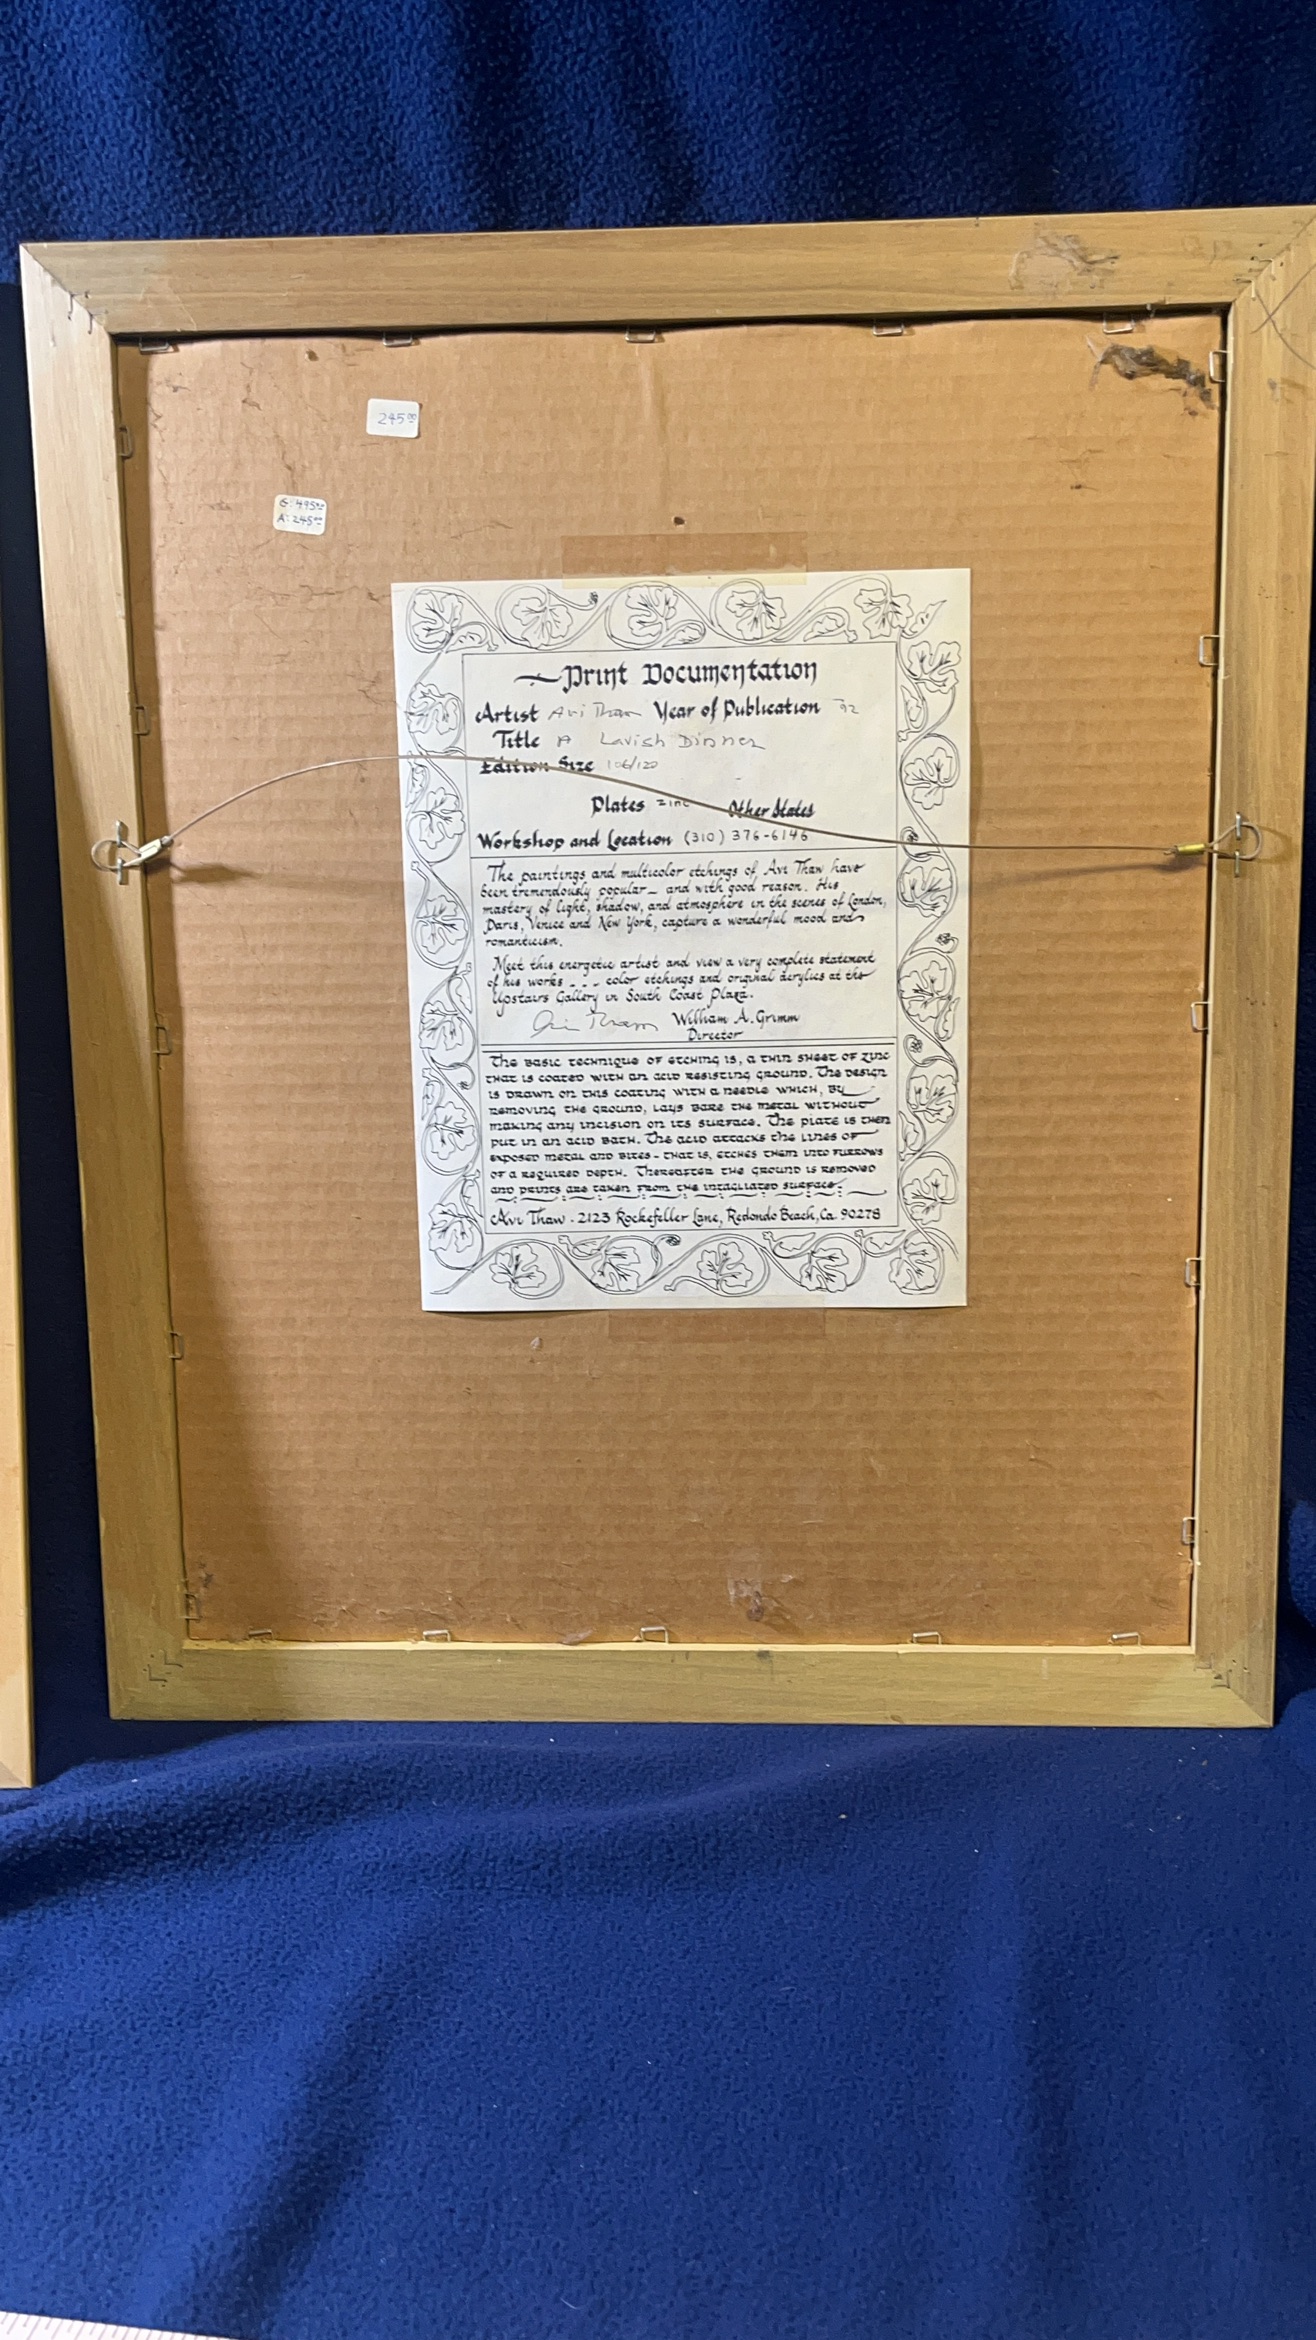 245⁰⁰
G: 495⁰⁰
A: 245⁰⁰
Print Documentation
Artist Avi Thaw Year of Publication '92
Title A Lavish Dinner
Edition Size 106/120
Plates zinc Other States
Workshop and Location (310) 376-6146
The paintings and multicolor etchings of Avi Thaw have
been tremendously popular — and with good reason. His
mastery of light, shadow, and atmosphere in the scenes of London,
Paris, Venice and New York, capture a wonderful mood and
romanticism.
Meet this energetic artist and view a very complete statement
of his works - - - color etchings and original acrylics at the
Upstairs Gallery in South Coast Plaza.
Avi Thaw William A. Grimm
Director
The basic technique of etching is, a thin sheet of zinc
that is coated with an acid resisting ground. The design
is drawn on this coating with a needle which, by
removing the ground, lays bare the metal without
making any incision on its surface. The plate is then
put in an acid bath. The acid attacks the lines of
exposed metal and bites - that is, etches them into furrows
of a required depth. Thereafter the ground is removed
and prints are taken from the intagliated surface.
Avi Thaw · 2123 Rockefeller Lane, Redondo Beach, Ca. 90278